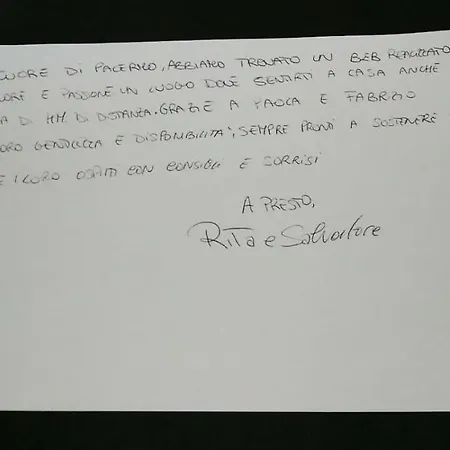 CUORE DI PALERMO, ABBIAMO TROVATO UN B&B REALIZZATO
E PASSIONE UN LUOGO DOVE SENTIRTI A CASA ANCHE
A DI KM DI DISTANZA. GRAZIE A PAOLA E FABRIZIO
LORO GENTILEZZA E DISPONIBILITA', SEMPRE PRONTI A SOSTENERE
E I LORO OSPITI CON CONSIGLI E SORRISI
A PRESTO,
Rita e Salvatore